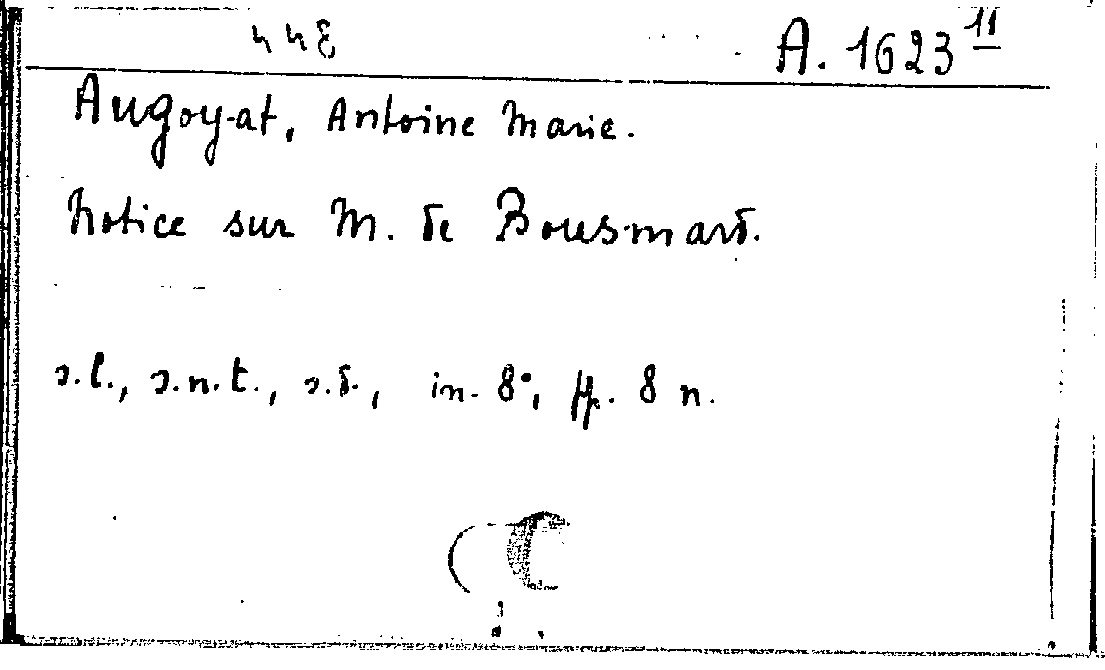 448 A. 1623 11
Augoyat, Antoine Marie.
Notice sur M. de Bousmard.
s.l., s.n.t., s.d., in-8°, pp. 8 n.